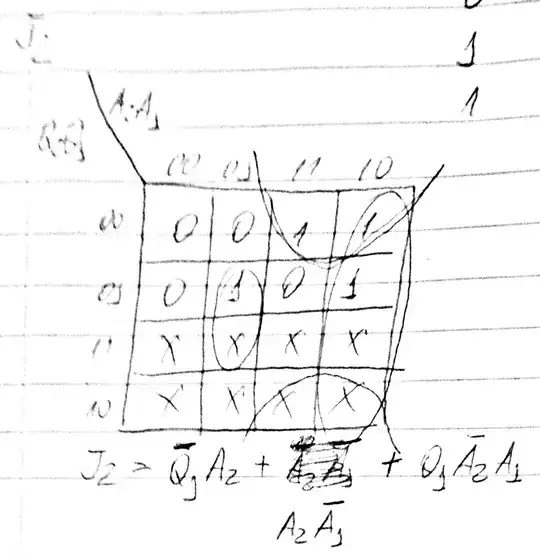 1
1
A₂A₁
00 01 11 10
00 0 0 1 1
01 0 1 0 1
11 X X X X
10 X X X X
J₂ = Q̄₁A₂ + + Q₁Ā₂A₁
A₂Ā₁